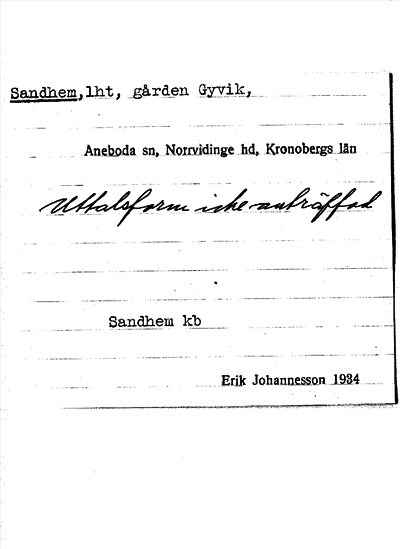 Sandhem, lht, gården Gyvik,
Aneboda sn, Norrvidinge hd, Kronobergs län
Uttalsform icke anträffad
Sandhem kb
Erik Johannesson 1934